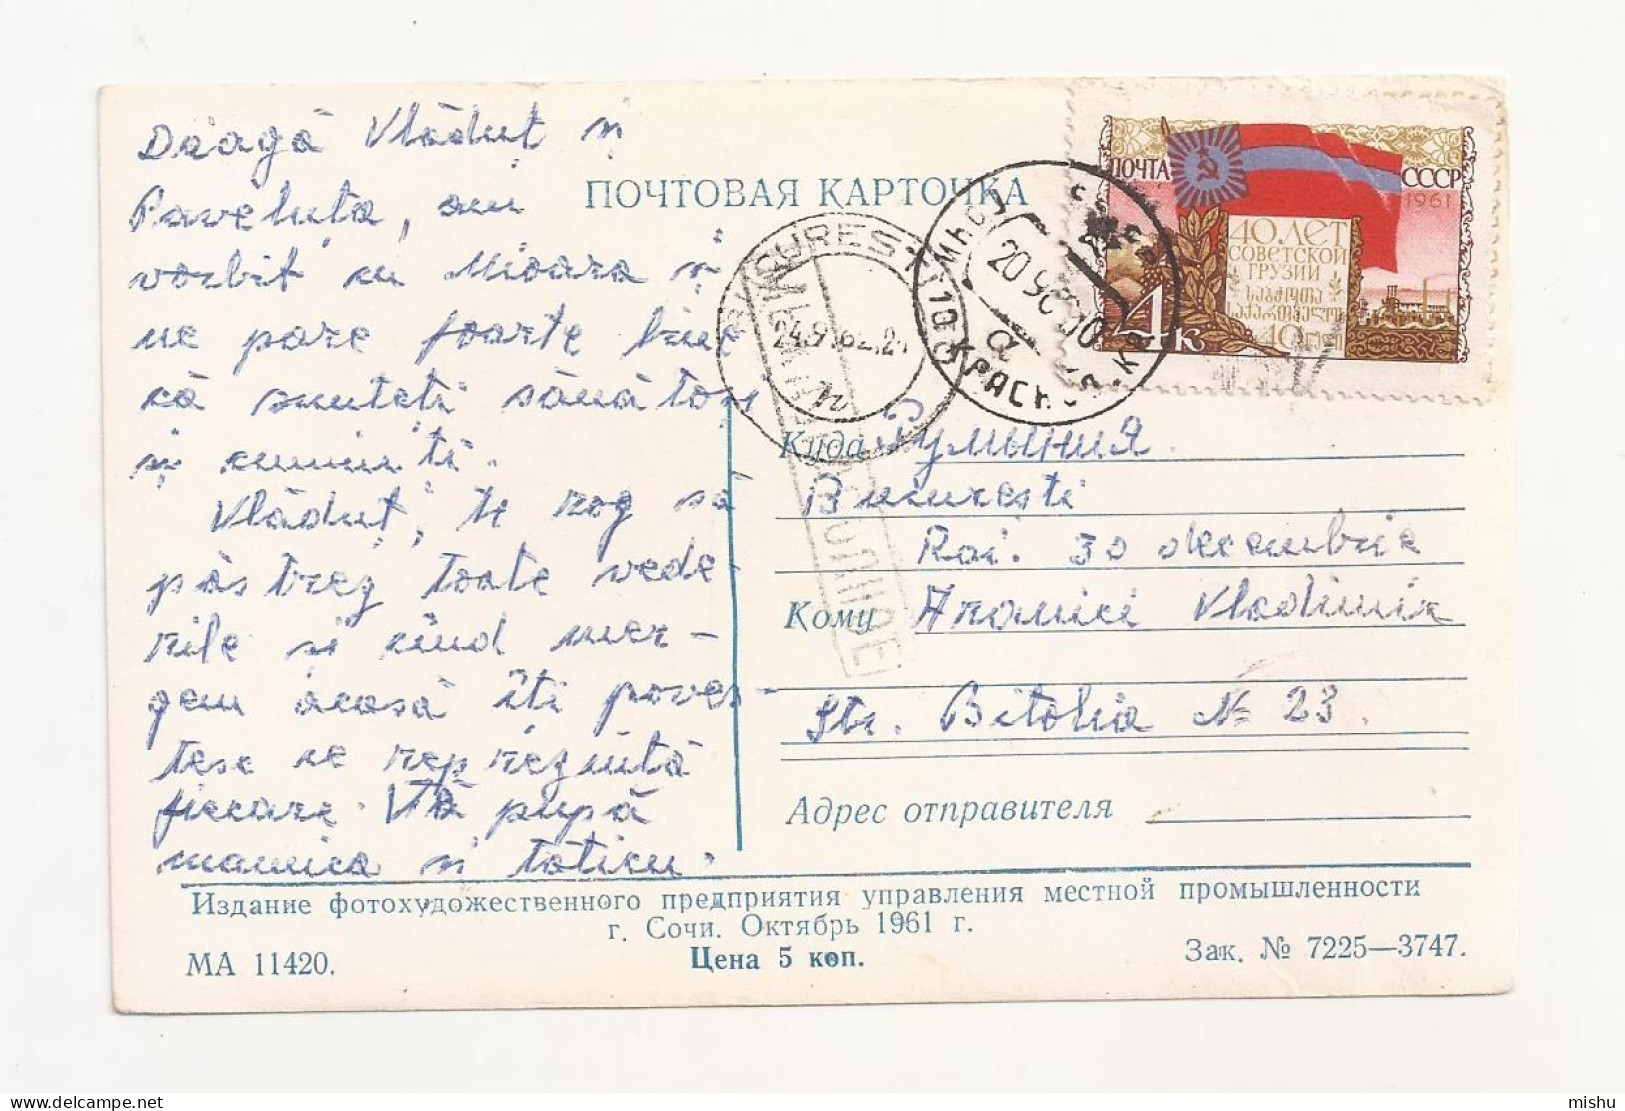 Dragă Vlăduț și
Paveluța, am
vorbit cu Mioara și
ne pare foarte bine
că sunteți sănătoși
și cuminți.
Vlăduț, te rog să
păstrez toate vede-
rile și cînd mer-
gem acasă îți poves-
tesc ce reprezintă
fiecare. Vă pupă
mamica și taticu.
ПОЧТОВАЯ КАРТОЧКА
ПОЧТА СССР
1961
40 ЛЕТ
СОВЕТСКОЙ
ГРУЗИИ
საბჭოთა
საქართველოს
40 წელი
4к
BUCUREȘTI
24.9.62.21
Куда Румыния.
București
Rai. 30 decembrie
Кому Aronici Vladimir
Str. Bitolia № 23.
Адрес отправителя
Издание фотохудожественного предприятия управления местной промышленности
г. Сочи. Октябрь 1961 г.
МА 11420.
Цена 5 коп.
Зак. № 7225—3747.
mishu
delcampe.net